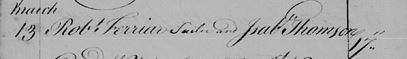 March
13 Robt. Ferriar Sailor and Isabl. Thomson 17"